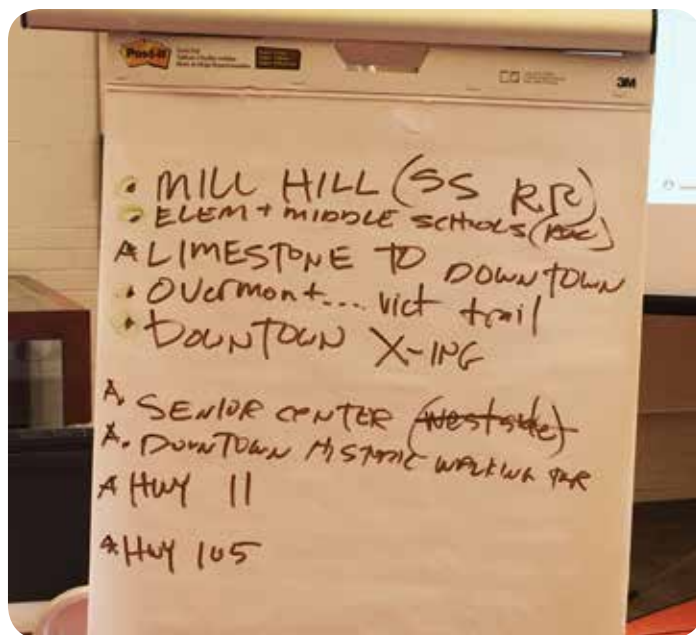 Post-it
3M
• MILL HILL (SS RR)
• ELEM + MIDDLE SCHOOLS
A LIMESTONE TO DOWNTOWN
• Overmont.... vict trail
• DOWNTOWN X-ING
A. SENIOR CENTER (westside)
A. DOWNTOWN HISTORIC WALKING TOUR
A HWY 11
A HWY 105